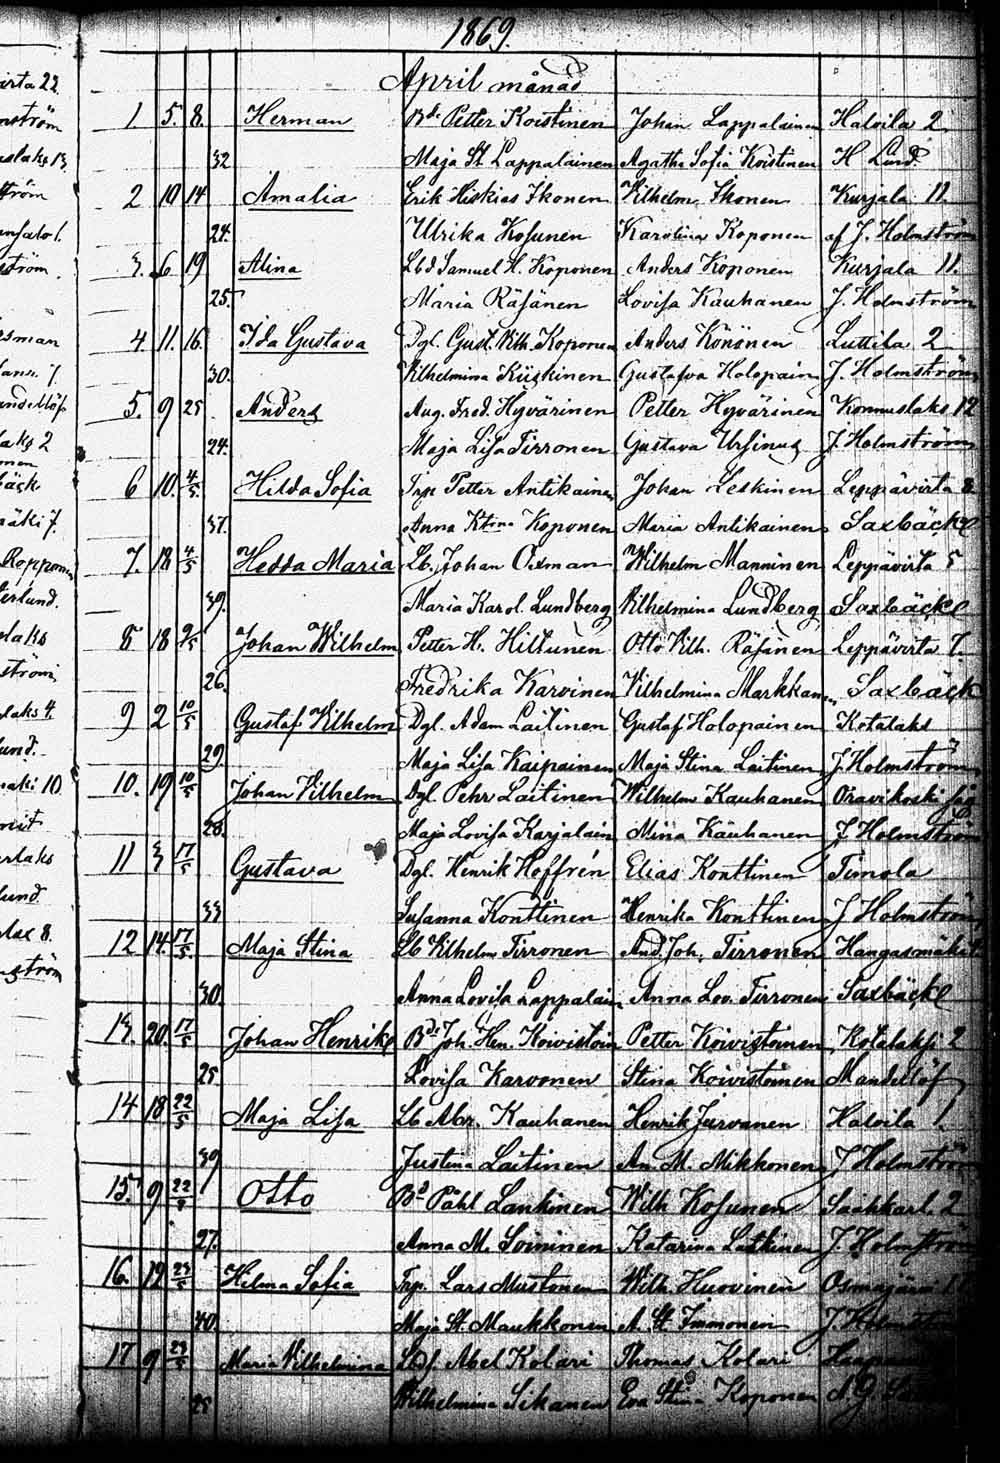 1869.
April månad
1 5. 8. Herman Bde Petter Koistinen Johan Lappalainen Halvila 2
32 Maja St. Lappalainen Agatha Sofia Koistinen H Lund.
2 10 14 Amalia Erik Hiskias Ikonen Vilhelm Ikonen Kurjala 11.
24. Ulrika Kosunen Karolina Koponen af J. Holmström
3. 6 19 Alina Lbd Samuel H. Koponen Anders Koponen Kurjala 11.
25. Maria Räsänen Lovisa Kauhanen J. Holmström
4 11. 16. Ida Gustava Dgl. Gust. Vilh. Koponen Anders Könönen Luttila 2
30. Vilhelmina Kiiskinen Gustafva Holopain J. Holmström
5. 9 25 Anders Aug. Fred. Hyvärinen Petter Hyvärinen Konnuslaks 12
24. Maja Lisa Tirronen Gustava Ursinus J. Holmström
6 10. 4/5. Hilda Sofia Inp Petter Antikainen Johan Leskinen Leppävirta 8
37. Anna Ktrina Koponen Maria Antikainen Saxbäck
7. 18 4/5 Hedda Maria Lb. Johan Oxman Wilhelm Manninen Leppävirta 5
39. Maria Karol. Lundberg Vilhelmina Lundberg Saxbäck
8 18 9/5 Johan Wilhelm Petter H. Hiltunen Otto Vilh. Räsänen Leppävirta 7.
26. Fredrika Karvinen Vilhelmina Markkanen Saxbäck
9 2 10/5 Gustaf Vilhelm Dgl. Adam Laitinen Gustaf Holopainen Kotalaks
29. Maja Lisa Kaipainen Maja Stina Laitinen J. Holmström
10. 19 10/5 Johan Vilhelm Dgl. Pehr Laitinen Wilhelm Kauhanen Oravikoski såg
28. Maja Lovisa Karjalain Mina Kauhanen J Holmström
11 3 17/5 Gustava Dgl. Henrik Hoffrén Elias Konttinen Timola
33 Susanna Konttinen Henrika Konttinen J Holmström
12 14. 17/5 Maja Stina Lb Vilhelm Tirronen And. Joh. Tirronen Hangasmäki
30. Anna Lovisa Lappalain Anna Lov. Tirronen Saxbäck
13. 20. 17/5 Johan Henrik Bde Joh. Hen. Koivistoin Petter Koivistoinen Kotalaks 2
25 Lovisa Karvonen Stina Koivistoinen Mandellöf
14 18 22/5 Maja Lisa Lb Abr. Kauhanen Henrik Jurvanen Halvila 1.
39 Justina Laitinen An. M. Mikkonen J Holmström
15. 9 22 Otto Bd Påhl Lankinen Wilh Kosunen Saahkarl. 2
27. Anna M. Soininen Katarina Laskinen J. Holmström
16. 19 23/5 Hilma Sofia Inp. Lars Mustonen Wilh. Huovinen Osmajärvi
40. Maja St. Maukkonen A. St. Immonen J. Holmström
17 9 23/5 Maria Vilhelmina Abel Kolari Thomas Kolari
25 Wilhelmina Sikanen Eva Stina Koponen A. G.